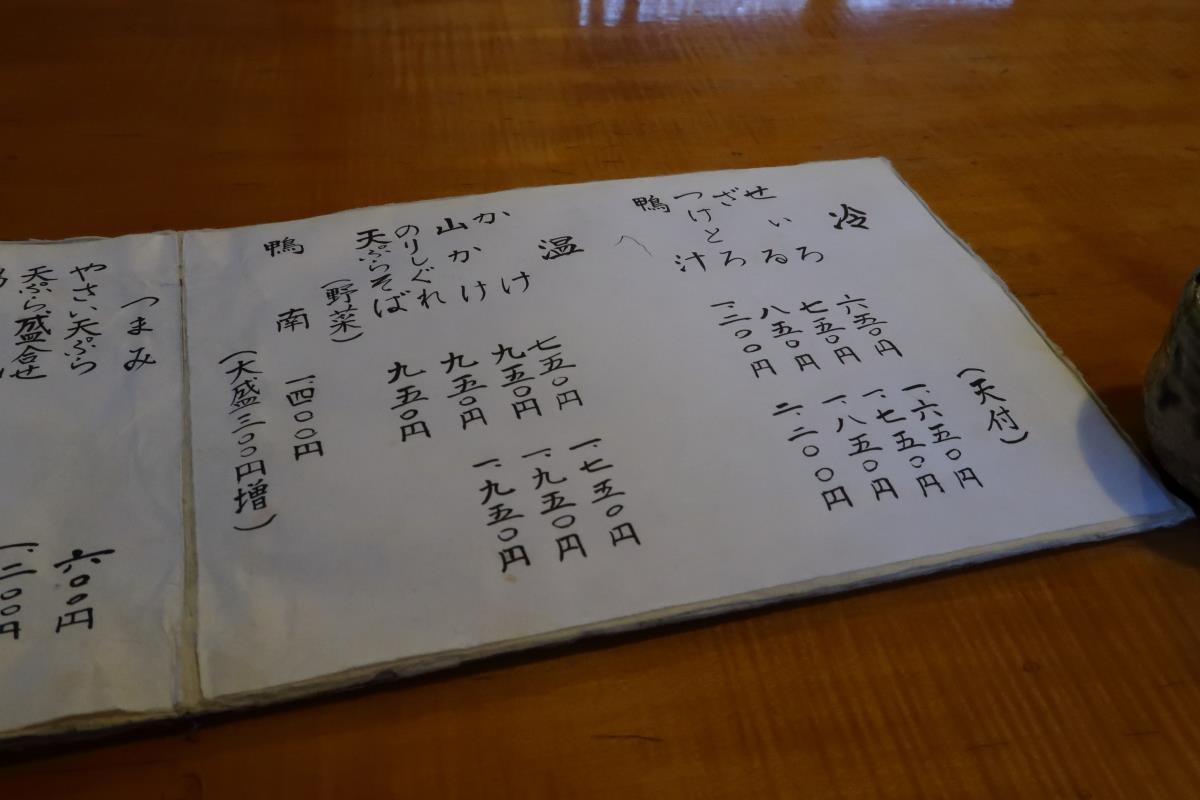 冷 (天付)
せいろ 六五〇円 一.六五〇円
ざる 七五〇円 一.七五〇円
つけとろ 八五〇円 一.八五〇円
鴨汁 一.二〇〇円 二.二〇〇円
温
かけ 七五〇円 一.七五〇円
山かけ 九五〇円 一.九五〇円
のりしぐれ 九五〇円 一.九五〇円
天ぷらそば 九五〇円
(野菜)
鴨南 一.四〇〇円
(大盛三〇〇円増)
つまみ
やさい天ぷら 六〇〇円
天ぷら盛合せ 一.二〇〇円